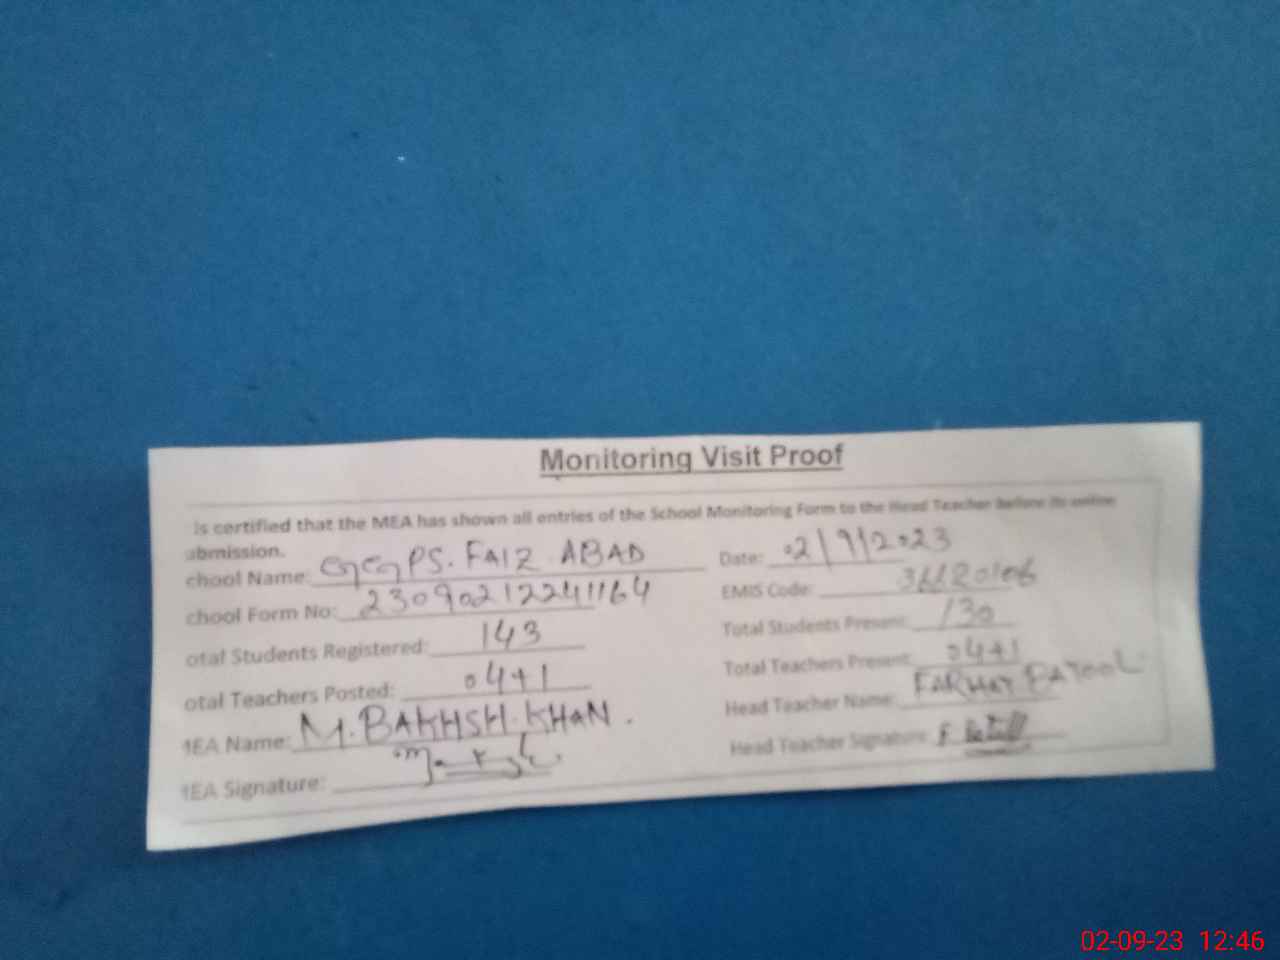 Monitoring Visit Proof
is certified that the MEA has shown all entries of the School Monitoring Form to the Head Teacher before its online
ubmission.
chool Name: GGPS. FAIZ ABAD Date: 02/9/2023
chool Form No: 230902122411164 EMIS Code:
otal Students Registered: 143 Total Students Present: 130
otal Teachers Posted: 04+1 Total Teachers Present: 04+1
MEA Name: M. BAKHSH. KHAN. Head Teacher Name: FARHAT BATOOL
MEA Signature: Head Teacher Signature:
02-09-23 12:46